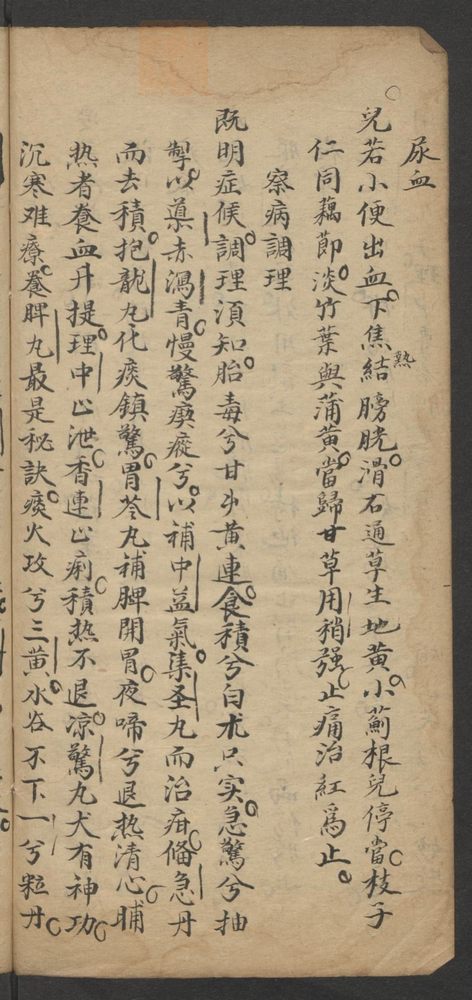 尿血
兒若小便出血下焦熱結膀胱滑石通草生地黃小薊根兒停當枝子
仁同藕節淡竹葉與蒲黃當歸甘草用稍强止痛治紅爲止
察病調理
既明症候調理須知胎毒兮甘艹黃連食積兮白朮只实急驚兮抽
掣以導赤瀉青慢驚瘓瘲兮以補中益氣集圣丸而治疳俻急丹
而去積抱龍丸化痰鎮驚胃苓丸補脾開胃夜啼兮退热清心脯
热者養血升提理中止泄香連止痢積热不退凉驚丸犬有神功
沉寒难療養脾丸最是秘訣痰火攻兮三黃水谷不下一兮粒丹